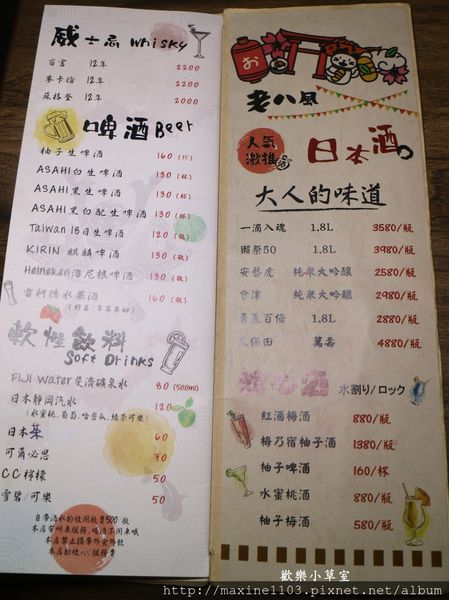 威士忌 Whisky
百富 12年 2200
麥卡倫 12年 2200
蘇格登 12年 2000
啤酒 Beer
柚子生啤酒 160 (杯)
ASAHI 白生啤酒 130 (杯)
ASAHI 黑生啤酒 130 (杯)
ASAHI 黑白配生啤酒 130 (杯)
Taiwan 18日生啤酒 120 (瓶)
KIRIN 麒麟啤酒 130 (瓶)
Heineken 海尼根啤酒 130 (瓶)
雪柯德水果酒 160 (瓶)
軟性飲料
Soft Drinks
FIJI Water 斐濟礦泉水 80 (500ml)
日本靜岡汽水 120
(水蜜桃,葡萄,哈密瓜,綠茶可樂)
日本茶 60
可爾必思 70
CC檸檬 50
雪碧/可樂 50
自帶酒水酌收開瓶費500元
本店禁止攜帶外食外飲
本店酌收10%服務費
お
老八風
人氣
激推
日本酒
大人的味道
一滴入魂 1.8L 3580/瓶
獺祭50 1.8L 3980/瓶
安藝虎 純米大吟釀 2580/瓶
會津 純米大吟釀 2980/瓶
勇義百倍 1.8L 2880/瓶
久保田 萬壽 4880/瓶
水割り/ロック
紅酒梅酒 880/瓶
梅乃宿柚子酒 1380/瓶
柚子啤酒 160/杯
水蜜桃酒 880/瓶
柚子梅酒 580/瓶
歡樂小草室
http://maxine1103.pixnet.net/album